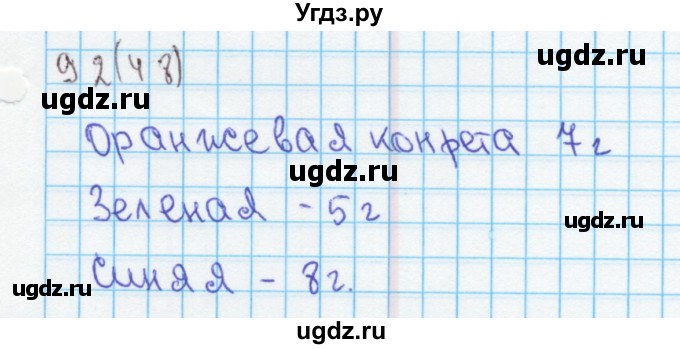 Угдз.ру
92(48)
ugdz.ru ugdz.ru
Оранжевая конфета 7г
ugdz.ru
Зеленая - 5г
ugdz.ru ugdz.ru
Синяя - 8г.
ugdz.ru ugdz.ru
ugdz.ru